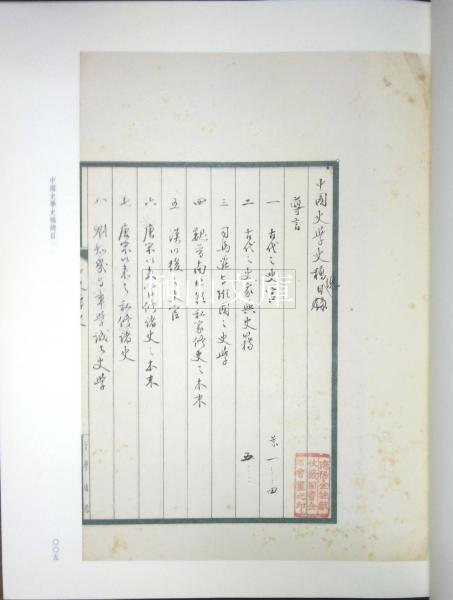 中国史学史稿目
導言
一 古代之史官 葉一、四
二 古代之史家與史籍 五
三 司馬遷与班固之史学
四 魏晉南北朝私家修史之本末
五 漢以後 官
六 唐宋以来官修諸史之本末
七 唐宋以来之私修諸史
八 劉知幾与章学誠之史学
中國史學史稿總目
〇〇五